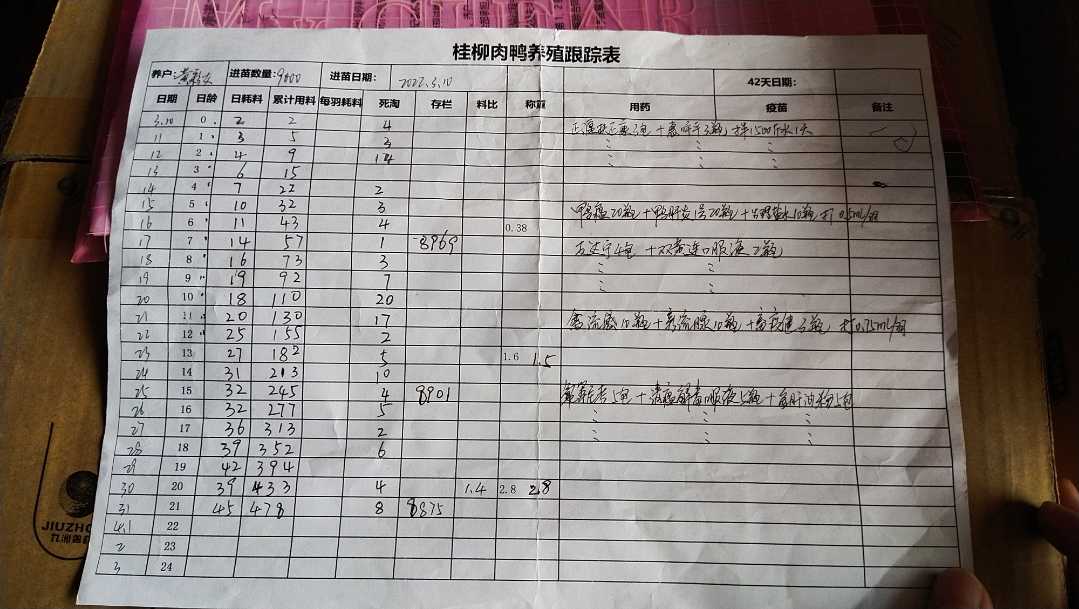 桂柳肉鸭养殖跟踪表
养户: 进苗数量:9000 进苗日期: 2022.3.10 42天日期:
日期 日龄 日耗料 累计用料 每羽耗料 死淘 存栏 料比 称重 用药 疫苗 备注
3.10 0 2 2 4
11 1 3 5 3
12 2 4 9 14
13 3 6 15
14 4 7 22 2
15 5 10 32 3 鸭瘟20瓶+鸭肝炎 20瓶+ 10瓶 打0.5ml/羽
16 6 11 43 4 0.38
17 7 14 57 1 8969 4包+双黄连口服液2瓶
18 8 16 73 3
19 9 19 92 7
20 10 18 110 20
21 11 20 130 17 禽流感10瓶+ 10瓶+ 3瓶 打0.75ml/羽
22 12 25 155 2
23 13 27 182 5 1.6 1.5
24 14 31 213 10
25 15 32 245 4 8901 5包+ 解毒口服液5瓶+鱼肝油粉5包
26 16 32 277 5
27 17 36 313 2
28 18 39 352 6
29 19 42 394
30 20 39 433 4 1.4 2.8 2.8
31 21 45 478 8 8875
4.1 22
2 23
3 24
JIUZHO